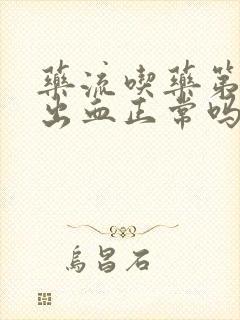 藥流喫藥第
出血正常嗎
烏昌石